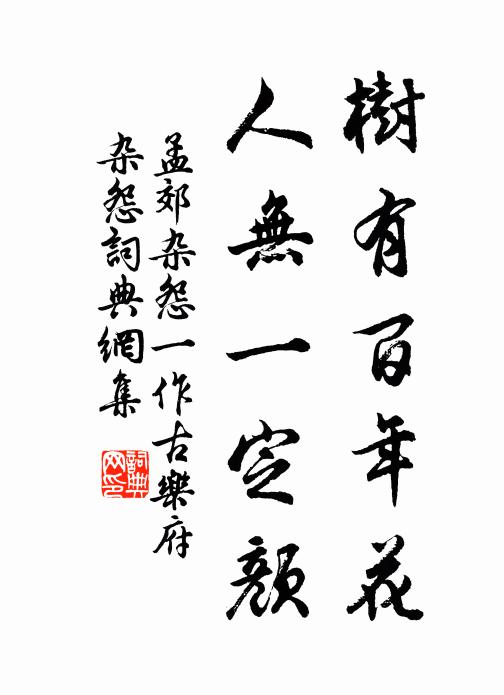 樹有百年花
人無一定顏
孟郊杂怨一作古樂府
杂怨詞典網集
詞典网印